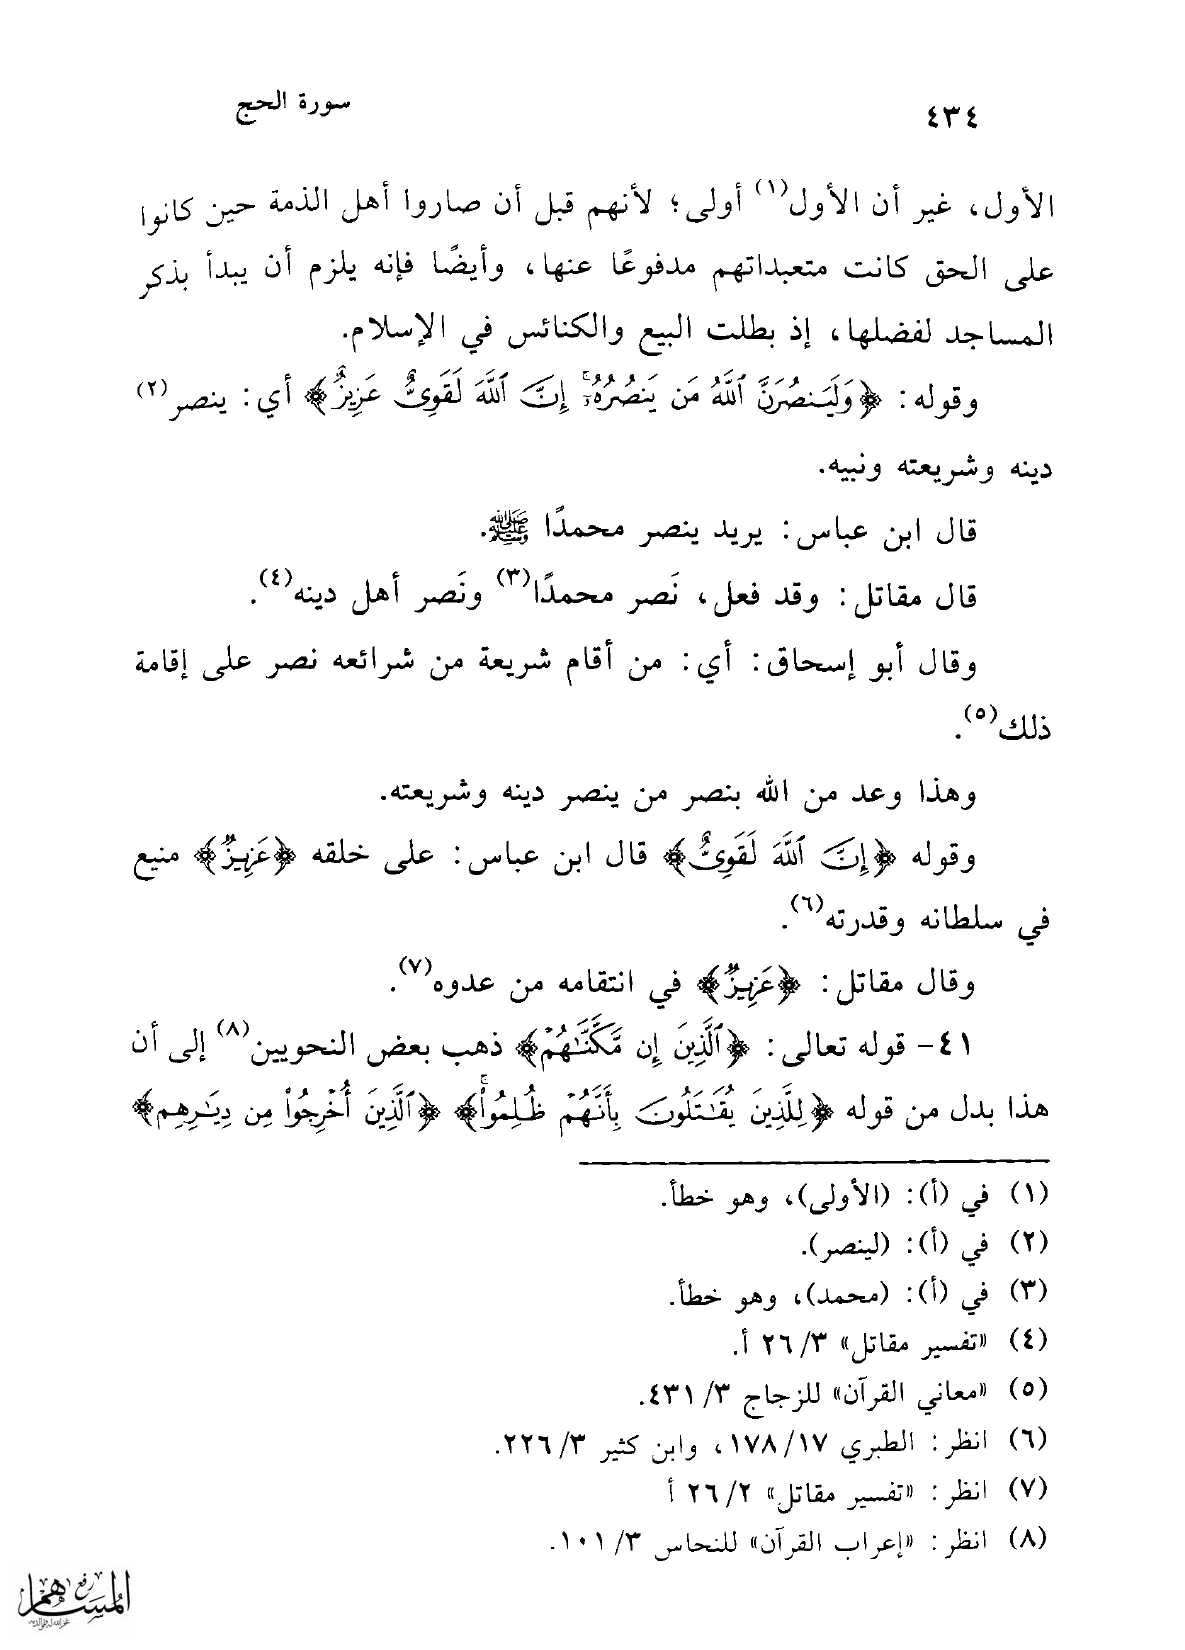 ٤٣٤
سورة الحج
الأول، غير أن الأول(١) أولى؛ لأنهم قبل أن صاروا أهل الذمة حين كانوا
على الحق كانت متعبداتهم مدفوعًا عنها، وأيضًا فإنه يلزم أن يبدأ بذكر
المساجد لفضلها، إذ بطلت البيع والكنائس في الإسلام.
وقوله: ﴿وَلَيَنصُرَنَّ ٱللَّهُ مَن يَنصُرُهُۥٓۚ إِنَّ ٱللَّهَ لَقَوِىٌّ عَزِيزٌ﴾ أي: ينصر(٢)
دينه وشريعته ونبيه.
قال ابن عباس: يريد ينصر محمدًا ﷺ.
قال مقاتل: وقد فعل، نَصر محمدًا(٣) ونَصر أهل دينه(٤).
وقال أبو إسحاق: أي: من أقام شريعة من شرائعه نصر على إقامة
ذلك(٥).
وهذا وعد من الله بنصر من ينصر دينه وشريعته.
وقوله ﴿إِنَّ ٱللَّهَ لَقَوِىٌّ﴾ قال ابن عباس: على خلقه ﴿عَزِيزٌ﴾ منيع
في سلطانه وقدرته(٦).
وقال مقاتل: ﴿عَزِيزٌ﴾ في انتقامه من عدوه(٧).
٤١- قوله تعالى: ﴿ٱلَّذِينَ إِن مَّكَّنَّٰهُمْ﴾ ذهب بعض النحويين(٨) إلى أن
هذا بدل من قوله ﴿لِلَّذِينَ يُقَٰتَلُونَ بِأَنَّهُمْ ظُلِمُواْۚ﴾ ﴿ٱلَّذِينَ أُخْرِجُواْ مِن دِيَٰرِهِم﴾
(١) في (أ): (الأولى)، وهو خطأ.
(٢) في (أ): (لينصر).
(٣) في (أ): (محمد)، وهو خطأ.
(٤) «تفسير مقاتل» ٣/ ٢٦ أ.
(٥) «معاني القرآن» للزجاج ٣/ ٤٣١.
(٦) انظر: الطبري ١٧/ ١٧٨، وابن كثير ٣/ ٢٢٦.
(٧) انظر: «تفسير مقاتل» ٢/ ٢٦ أ
(٨) انظر: «إعراب القرآن» للنحاس ٣/ ١٠١.